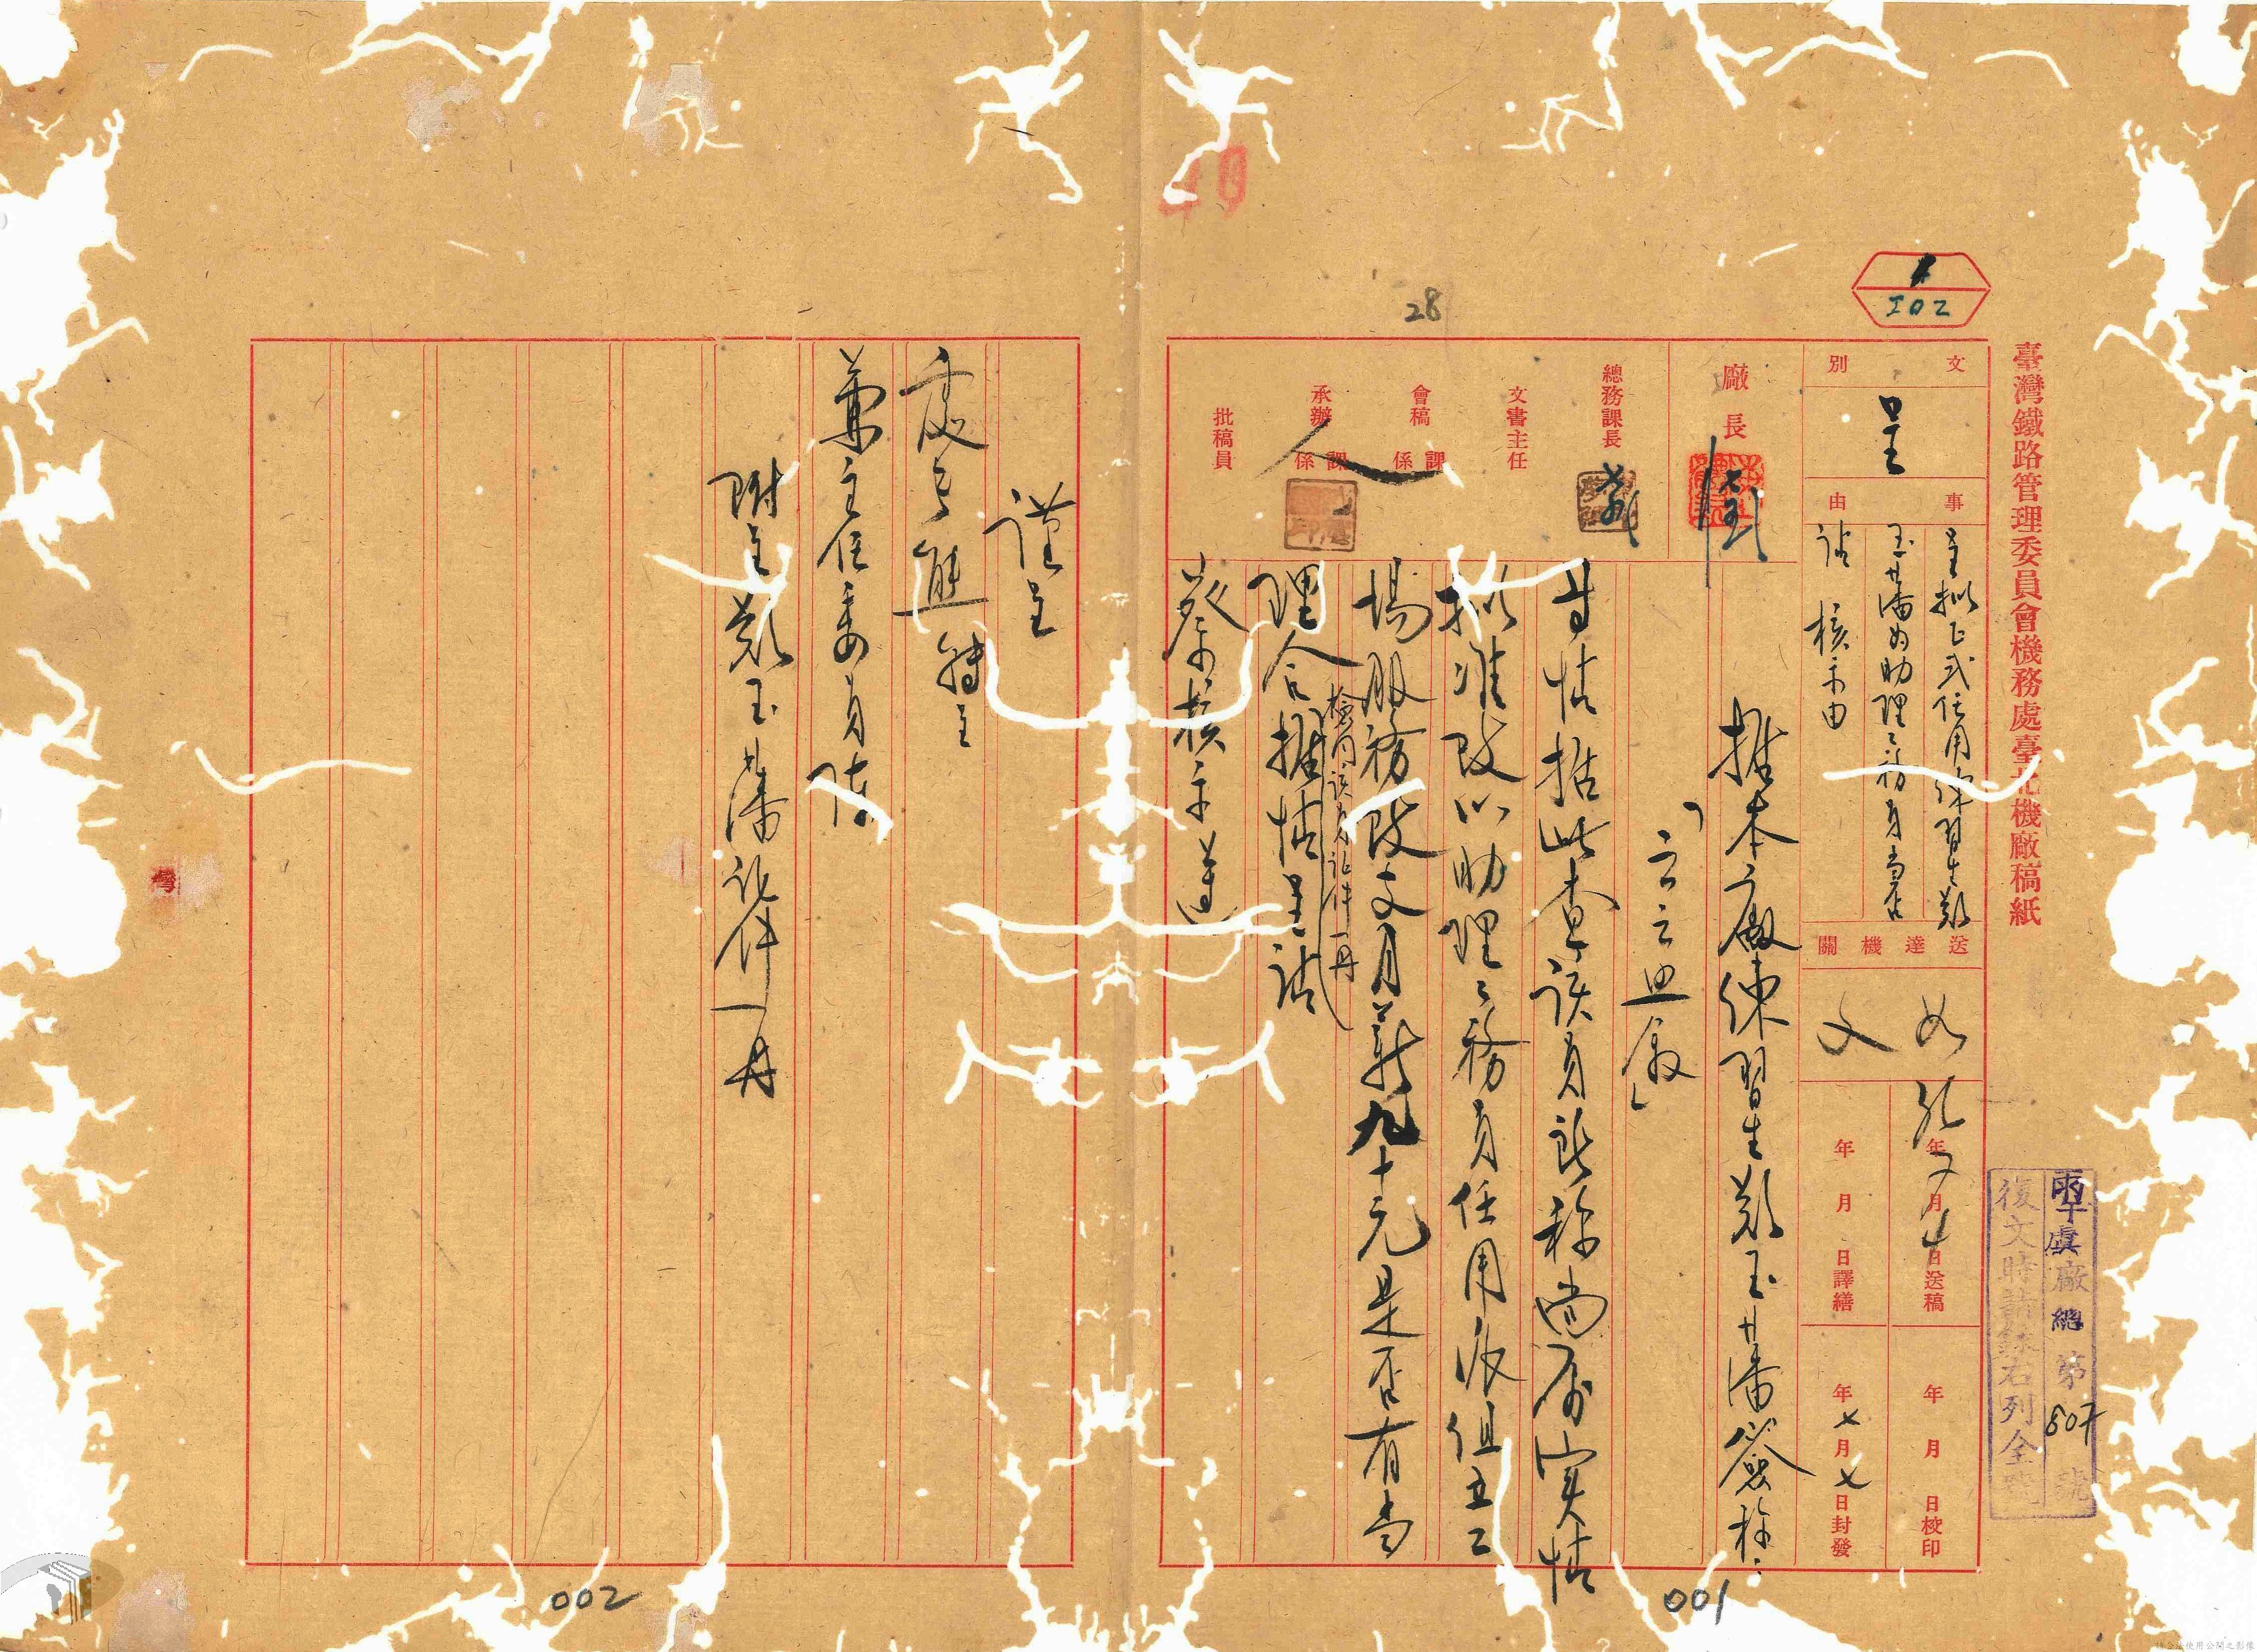 臺灣鐵路管理委員會機務處臺北機廠稿紙
502
文別
呈
事由
呈擬正式任用練習生鄭
玉藩為助理工務員當否
請 核示由
送達機關
如文
年月日送稿
年月日譯繕
年月日校印
年七月七日封發
廠虞廠總第807號
復文時請錄右列全號
廠長
總務課長
文書主任
會稿 課係
承辦 課係
批稿員
據本廠練習生鄭玉藩簽稱:
「云云照敘」
等情據此查該員所稱尚屬實情
擬准改以助理工務員任用派組立工
場服務改支月薪九十元是否有當
檢同該員証件一冊
理合據情呈請
鑒核示遵
謹呈
處長熊 轉呈
兼主任委員陳
附呈鄭玉藩証件一冊
28
40
001
002
灣